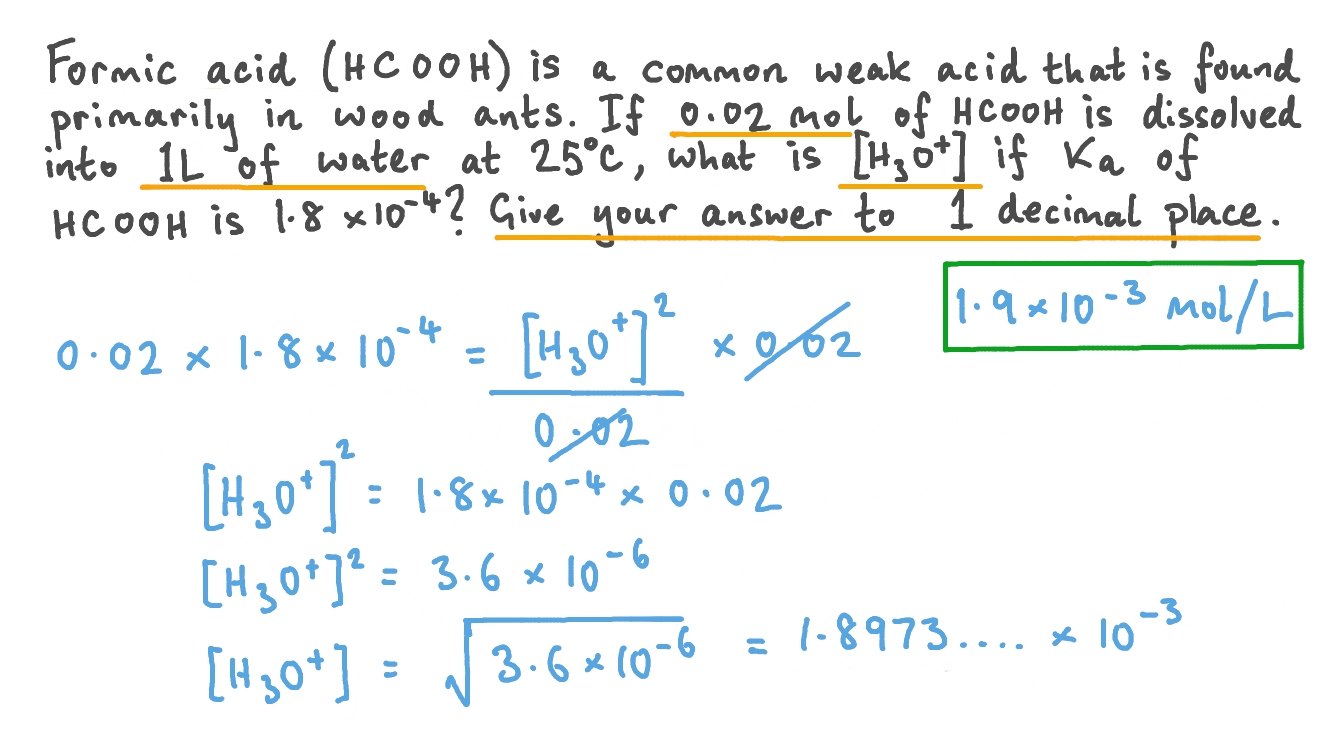 Formic acid (HCOOH) is a common weak acid that is found
primarily in wood ants. If 0.02 mol of HCOOH is dissolved
into 1L of water at 25°C, what is [H₃O⁺] if Ka of
HCOOH is 1.8 ×10⁻⁴? Give your answer to 1 decimal place.
1.9 × 10⁻³ mol/L
0.02 × 1.8 × 10⁻⁴ = [H₃O⁺]² × 0.02
0.02
[H₃O⁺]² = 1.8 × 10⁻⁴ × 0.02
[H₃O⁺]² = 3.6 × 10⁻⁶
[H₃O⁺] = √3.6 × 10⁻⁶ = 1.8973.... × 10⁻³